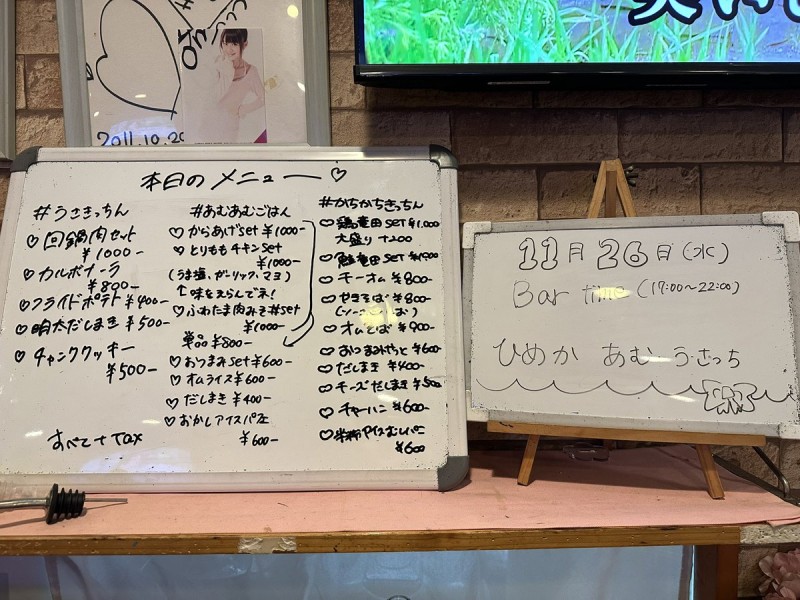 2011.10.20
本日のメニュー♡
#うさきっちん
♡回鍋肉セット
¥1000-
♡カルボナーラ
¥890-
♡フライドポテト¥400-
♡明太だしまき¥500-
♡チャンククッキー
¥500-
すべて+Tax
#あむあむごはん
♡からあげset ¥1000-
♡とりももチキンset
¥1000-
(うま塩、ガーリック、マヨ)
↑味をえらんでネ!
♡ふわたま肉みそ丼set
¥1000-
単品¥800-
♡おつまみset¥600-
♡オムライス¥600-
♡だしまき ¥400-
♡おかしアイスパス
¥600-
#かちかちきっちん
♡鶏竜田set ¥1.000
大盛り +200
♡竜田set ¥1000
♡チーオム ¥800-
♡やきそば ¥800-
♡オムそば ¥900-
♡おつまみせっと ¥600-
♡だしまき ¥400-
♡チーズだしまき ¥500
♡チャーハン ¥600-
♡米粉アイスむしパン
¥600
11月26日(水)
Bar time (17:00~22:00)
ひめか あむ うさっち